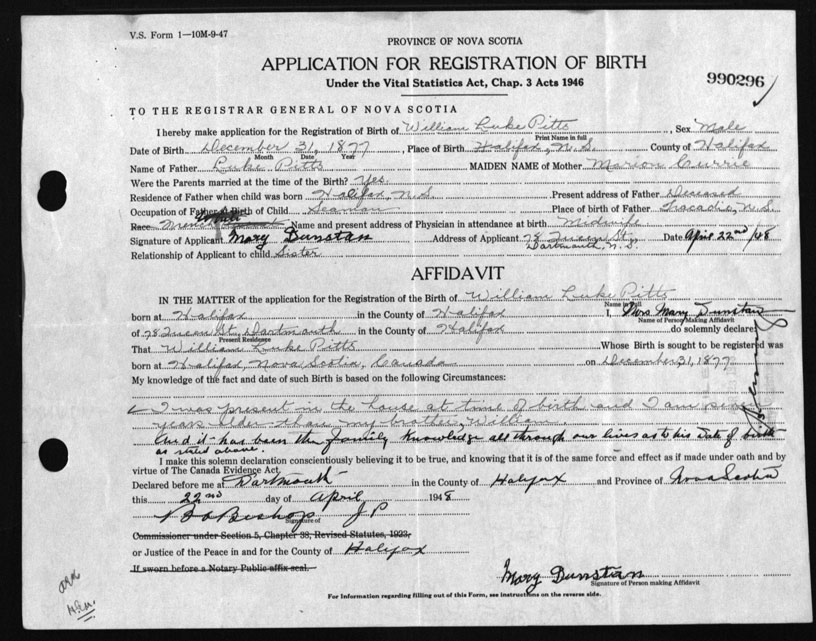 V.S. Form 1—10M-9-47
PROVINCE OF NOVA SCOTIA
APPLICATION FOR REGISTRATION OF BIRTH
Under the Vital Statistics Act, Chap. 3 Acts 1946
990296
TO THE REGISTRAR GENERAL OF NOVA SCOTIA
I hereby make application for the Registration of Birth of William Luke Pitts, Sex Male
Print Name in full
Date of Birth December 31, 1877, Place of Birth Halifax, N.S. County of Halifax
Month Date Year
Name of Father Luke Pitts MAIDEN NAME of Mother Marion Currie
Were the Parents married at the time of the Birth? Yes
Residence of Father when child was born Halifax, N.S. Present address of Father Deceased
Occupation of Father @ Birth of Child Seaman Place of birth of Father Tracadie, N.S.
Race Name and present address of Physician in attendance at birth Midwife
Signature of Applicant Mary Dunstan Address of Applicant 78 Queen St., Dartmouth, N.S. Date April 22nd /48
Relationship of Applicant to child Sister
AFFIDAVIT
IN THE MATTER of the application for the Registration of the Birth of William Luke Pitts
Name in full
born at Halifax in the County of Halifax I, Mrs Mary Dunstan
Name of Person Making Affidavit
of 78 Queen St, Dartmouth in the County of Halifax do solemnly declare
Present Residence
That William Luke Pitts Whose Birth is sought to be registered was
born at Halifax, Nova Scotia, Canada on December 31, 1877
My knowledge of the fact and date of such Birth is based on the following Circumstances:
I was present in the house at time of birth and I am seven
years older than my brother William
And it has been the family knowledge all through our lives as to his date of birth
as stated above.
I make this solemn declaration conscientiously believing it to be true, and knowing that it is of the same force and effect as if made under oath and by
virtue of The Canada Evidence Act.
Declared before me at Dartmouth in the County of Halifax and Province of Nova Scotia
this 22nd day of April 1948
Bishop J P
Signature of
Commissioner under Section 5, Chapter 38, Revised Statutes, 1923,
or Justice of the Peace in and for the County of Halifax
If sworn before a Notary Public affix seal.
Mary Dunstan
Signature of Person making Affidavit
For Information regarding filling out of this Form, see instructions on the reverse side.